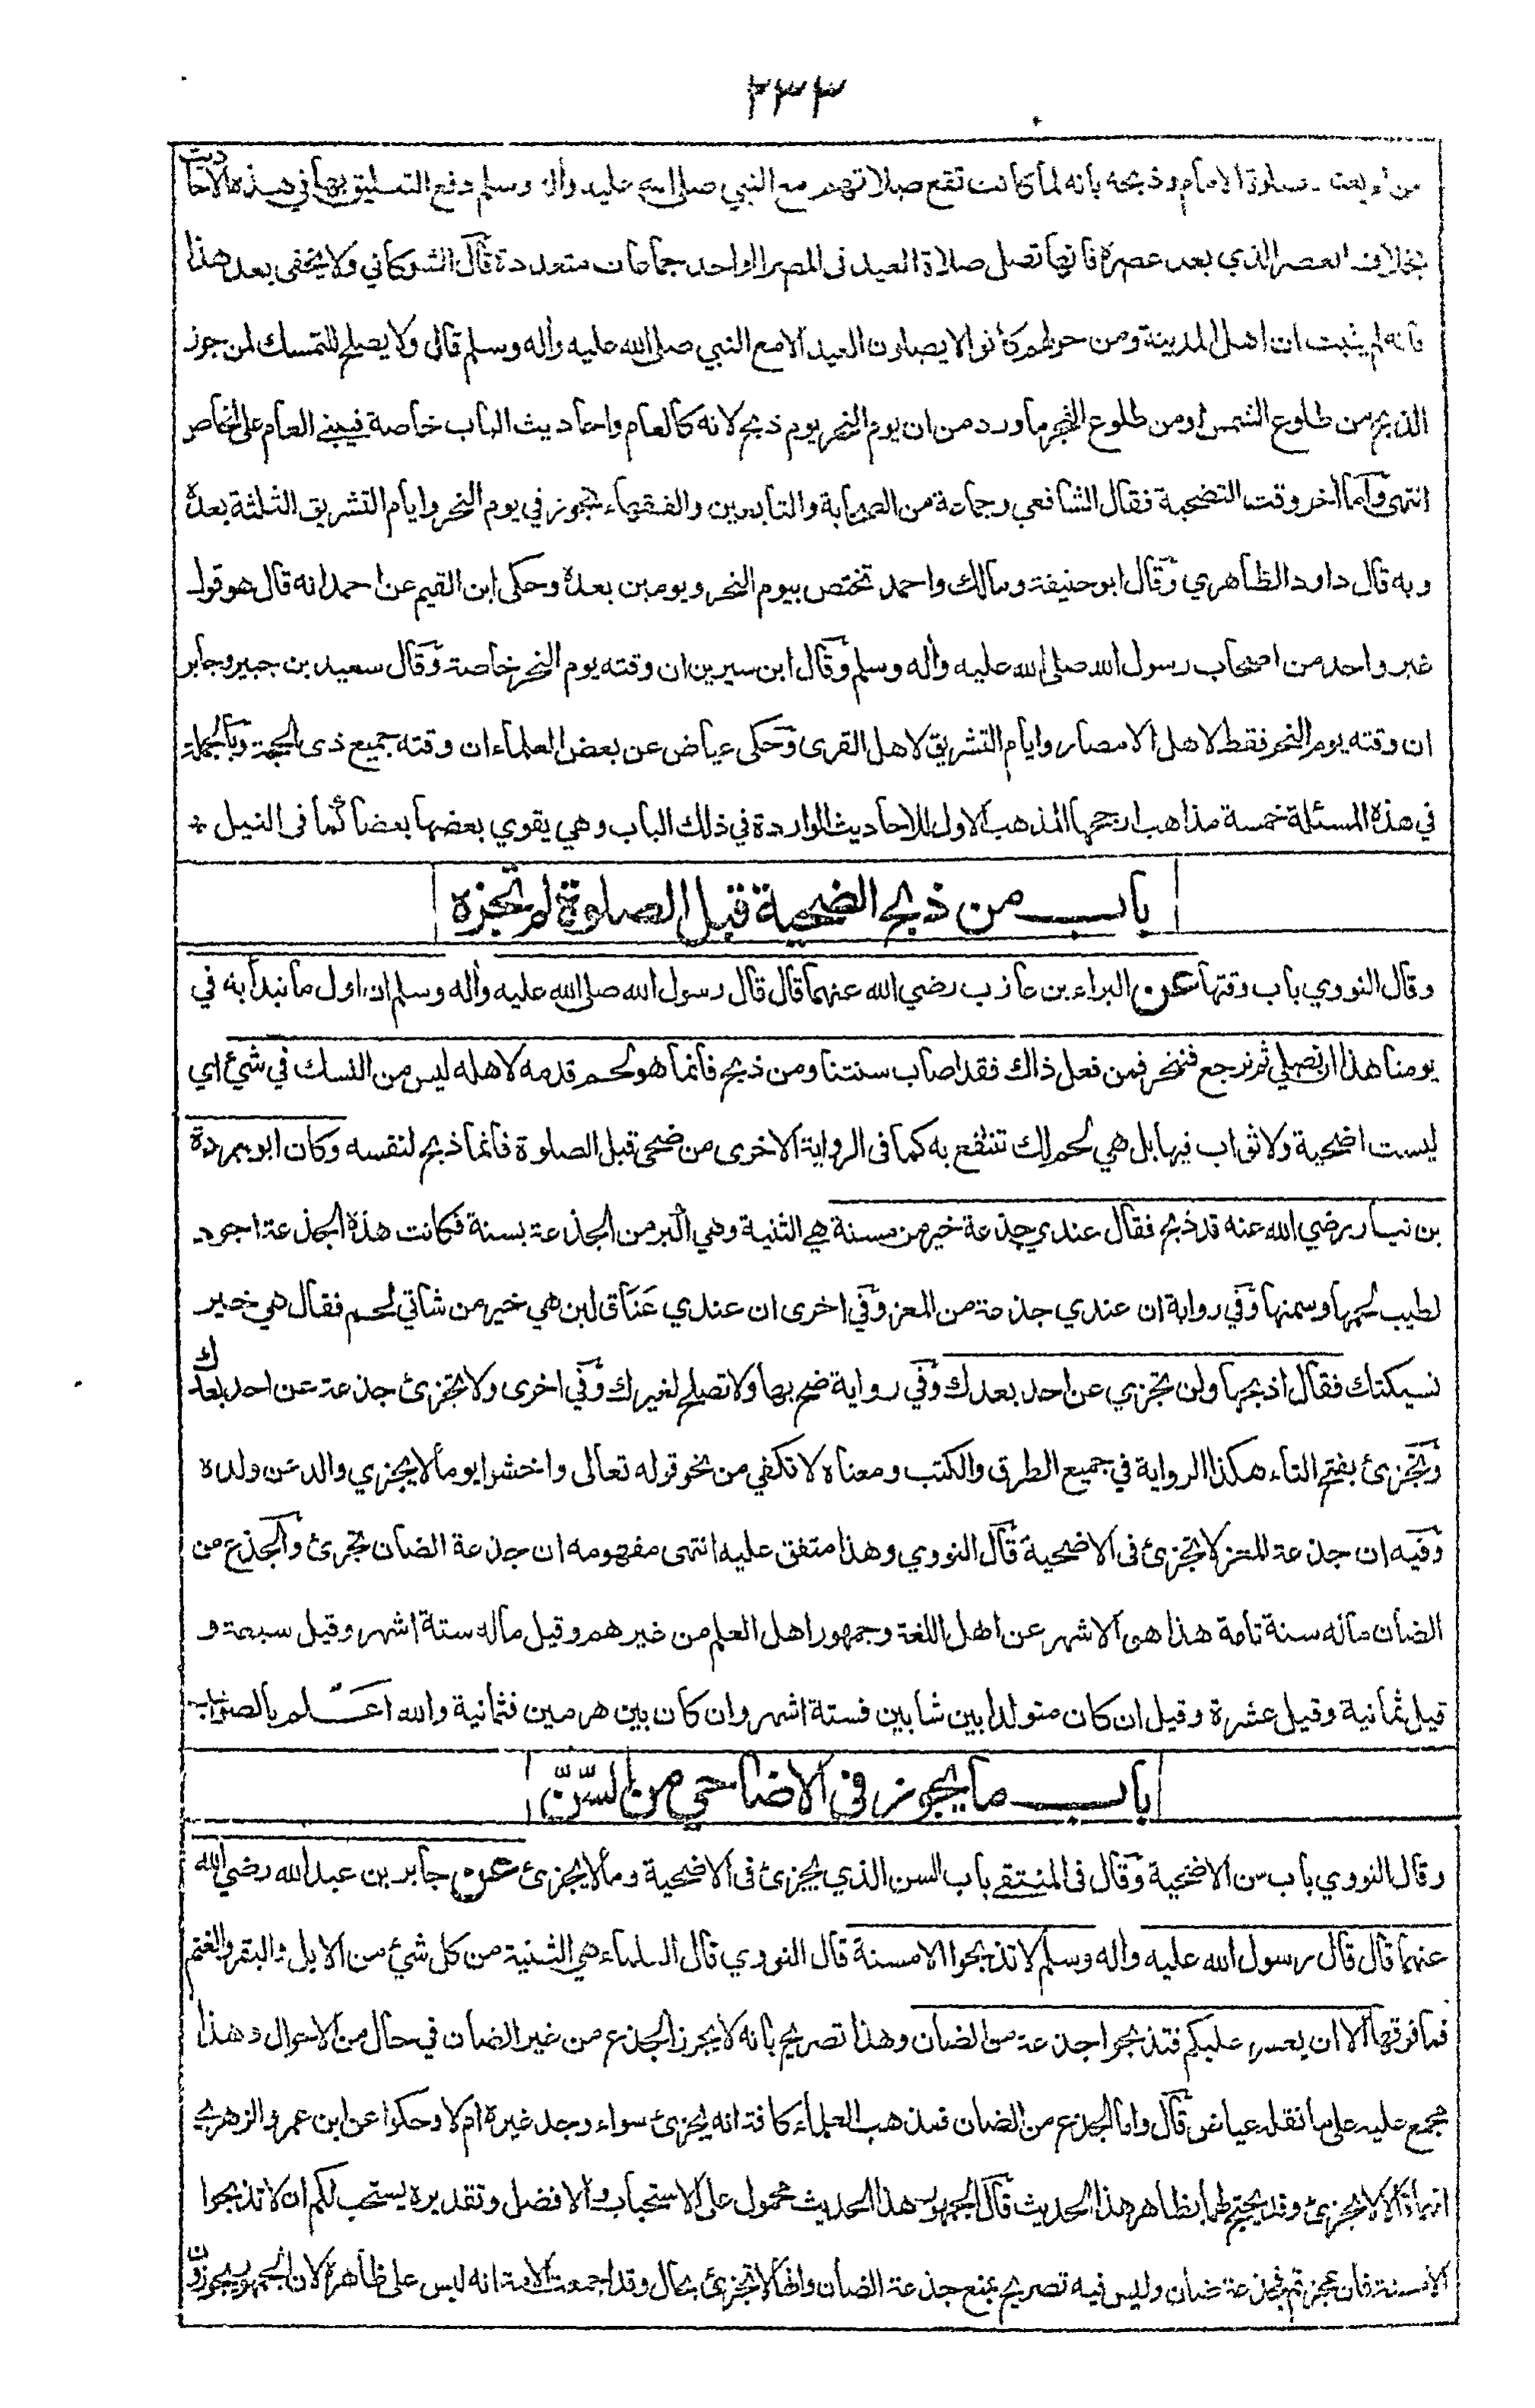 ٢٣٣
وذبحه بانه لما كانت تقع صلاتهم مع النبي صلى الله عليه وأله وسلم دفع التعليق بها في هذه الاحاديث
بخلاف العصر الذي بعد عصره فانها تصلى صلاة العيد فى المصر الواحد جماعات متعددة قال الشوكاني ولا يخفى بعد هذا
فانه لم يثبت ان اهل المدينة ومن حولهم كانوا لا يصلون العيد الا مع النبي صلى الله عليه وأله وسلم قال ولا يصلح للتمسك لمن جوز
الذبح من طلوع الشمس او من طلوع الفجر ما ورد من ان يوم النحر يوم ذبح لانه كالعام واحاديث الباب خاصة فيبنى العام على الخاص
انتهى وأما أخر وقت التضحية فقال الشافعي وجماعة من الصحابة والتابعين والفقهاء تجوز في يوم النحر وايام التشريق الثلثة بعده
وبه قال داود الظاهري وقال ابو حنيفة ومالك واحمد تختص بيوم النحر ويومين بعده وحكى ابن القيم عن احمد انه قال هو قول
غير واحد من اصحاب رسول الله صلى الله عليه وأله وسلم وقال ابن سيرين ان وقته يوم النحر خاصة وقال سعيد بن جبير وجابر
ان وقته يوم النحر فقط لاهل الامصار وايام التشريق لاهل القرى وحكى عياض عن بعض العلماء ان وقته جميع ذى الحجة وبالجملة
في هذه المسئلة خمسة مذاهب ارجحها المذهب الاول للاحاديث الواردة في ذلك الباب وهي يقوي بعضها بعضا كما فى النيل *
باب من ذبح الضحية قبل الصلوة لم تجزه
وقال النووي باب وقتها عن البراء بن عازب رضي الله عنهما قال قال رسول الله صلى الله عليه وأله وسلم ان اول ما نبدأ به في
يومنا هذا ان نصلي ثم نرجع فننحر فمن فعل ذاك فقد اصاب سنتنا ومن ذبح فانما هو لحم قدمه لاهله ليس من النسك في شئ اي
ليست اضحية ولا ثواب فيها بل هي لحم لك تنتفع به كما فى الرواية الاخرى من ضحى قبل الصلوة فانما ذبح لنفسه وكان ابو بردة
بن نيار رضي الله عنه قد ذبح فقال عندي جذعة خير من مسنة هي الثنية وهي اكبر من الجذعة بسنة فكانت هذه الجذعة اجود
لطيب لحمها وسمنها وفي رواية ان عندي جذعة من المعز وفي اخرى ان عندي عَنَاق لبن هي خير من شاتي لحم فقال هي خير
نسيكتك فقال اذبحها ولن تجزي عن احد بعدك وفي رواية ضح بها ولا تصلح لغيرك وفي اخرى ولا تجزئ جذعة عن احد بعدك
وتجزئ بفتح التاء هكذا الرواية في جميع الطرق والكتب ومعناه لا تكفي من نحو قوله تعالى واخشوا يوما لا يجزي والد عن ولده
وفيه ان جذعة المعز لا تجزئ فى الاضحية قال النووي وهذا متفق عليه انتهى مفهومه ان جذعة الضان تجزئ والجذع من
الضأن ماله سنة تامة هذا هو الاشهر عن اهل اللغة وجمهور اهل العلم من غيرهم وقيل ماله ستة اشهر وقيل سبعة و
قيل ثمانية وقيل عشرة وقيل ان كان متولدا بين شابين فستة اشهر وان كان بين هرمين فثمانية والله اعلم بالصواب
باب ما يجوز فى الاضاحي من السّنّ
وقال النووي باب سن الاضحية وقال فى المنتقى باب السن الذي يجزئ فى الاضحية وما لا يجزئ عن جابر بن عبد الله رضي الله
عنهما قال قال رسول الله عليه واله وسلم لا تذبحوا الا مسنة قال النووي قال العلماء هي الثنية من كل شئ من الابل والبقر والغنم
فما فوقها الا ان يعسر عليكم فتذبحوا جذعة من الضان وهذا تصريح بانه لا يجوز الجذع من غير الضان في حال من الاحوال وهذا
مجمع عليه على ما نقله عياض قال واما الجذع من الضان فمذهب العلماء كافة انه يجزئ سواء وجد غيره ام لا وحكوا عن ابن عمر والزهري
انهما قالا لا يجزئ وقد يحتج لهما بظاهر هذا الحديث قال الجمهور هذا الحديث محمول على الاستحباب والافضل وتقديره يستحب لكم ان لا تذبحوا
الا مسنة فان عجزتم فجذعة ضان وليس فيه تصريح بمنع جذعة الضان وانها لا تجزئ بحال وقد اجمعت الامة انه ليس على ظاهره لان الجمهور يجوزون